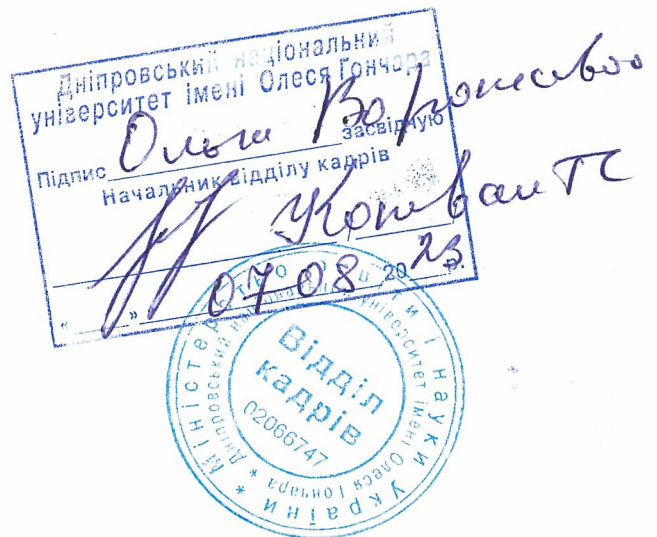 Дніпровський національний
університет імені Олеся Гончара
Підпис Ольги засвідчую
Начальник відділу кадрів
07 08 20 23 р.
Міністерство освіти і науки України *
Дніпровський національний університет імені Олеся Гончара *
Відділ
кадрів
02066747